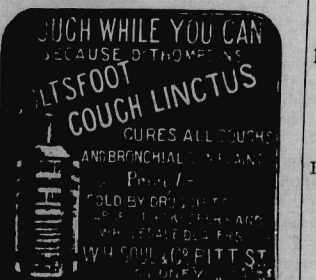 OUGH WHILE YOU CAN
BECAUSE Dr THOMPSON'S
LTSFOOT
COUGH LINCTUS
CURES ALL COUGHS
AND BRONCHIAL
Price 1/-
SOLD BY
AND
WHOLESALE DEALERS
W H SOUL & Co PITT ST
SYDNEY